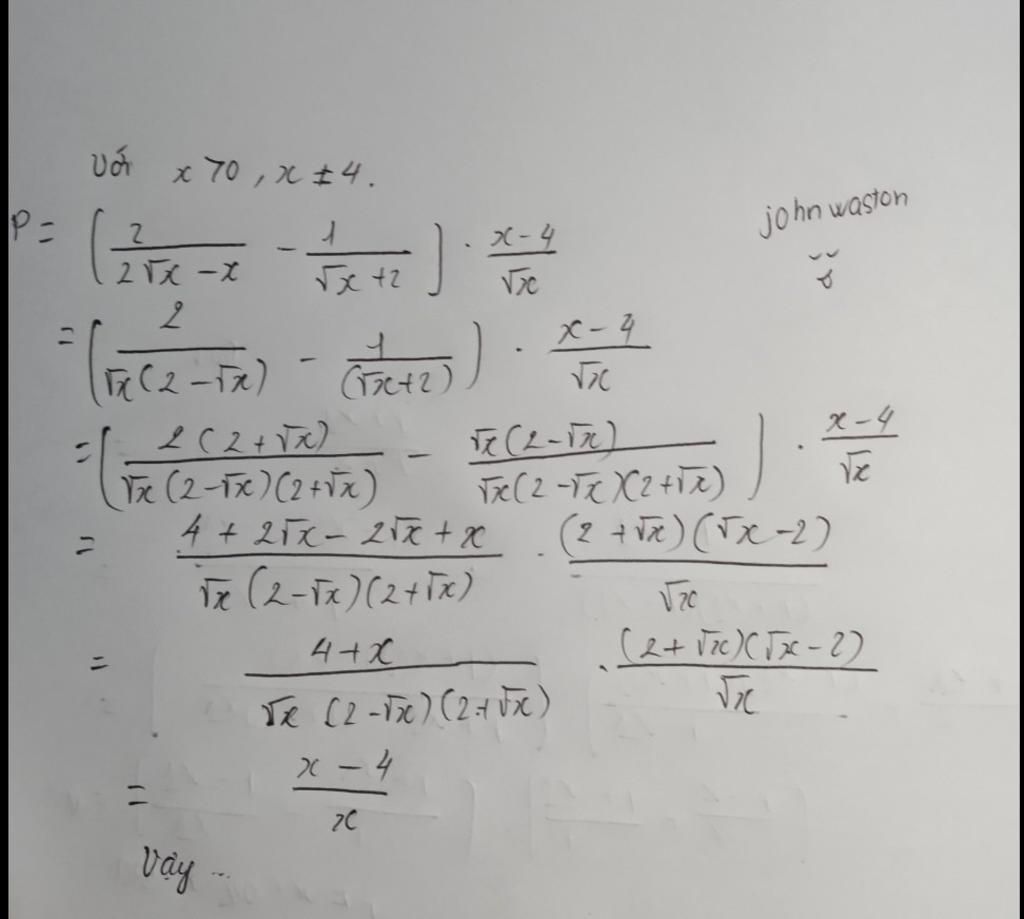 Với x > 0, x ≠ 4.
john waston
P = (2/(2√x - x) - 1/(√x + 2)) · (x - 4)/√x
= (2/(√x(2 - √x)) - 1/((√x + 2))) · (x - 4)/√x
= (2(2 + √x)/(√x(2 - √x)(2 + √x)) - √x(2 - √x)/(√x(2 - √x)(2 + √x))) · (x - 4)/√x
= (4 + 2√x - 2√x + x)/(√x(2 - √x)(2 + √x)) · (2 + √x)(√x - 2)/√x
= (4 + x)/(√x(2 - √x)(2 + √x)) · (2 + √x)(√x - 2)/√x
= (x - 4)/x
Vậy ...